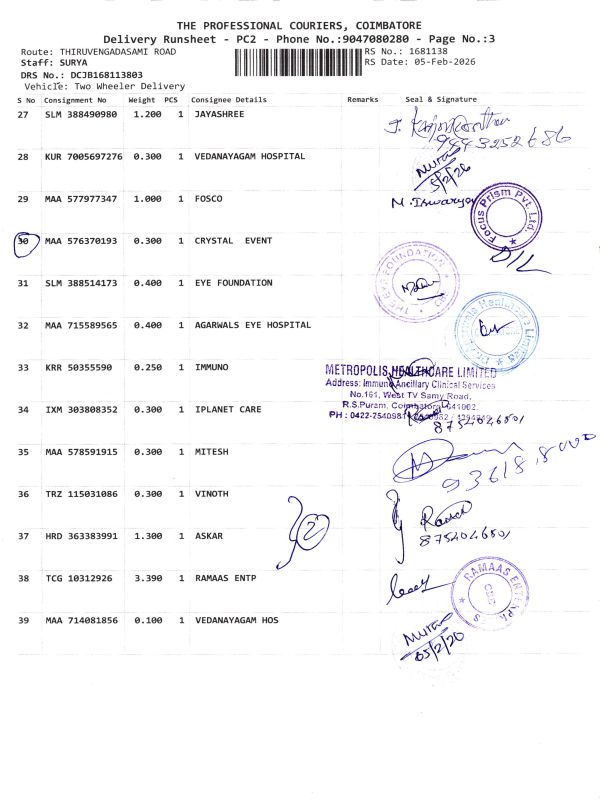 THE PROFESSIONAL COURIERS, COIMBATORE
Delivery Runsheet - PC2 - Phone No.:9047080280 - Page No.:3
Route: THIRUVENGADASAMI ROAD RS No.: 1681138
Staff: SURYA RS Date: 05-Feb-2026
DRS No.: DCJB168113803
Vehicle: Two Wheeler Delivery
S No Consignment No Weight PCS Consignee Details Remarks Seal & Signature
27 SLM 388490980 1.200 1 JAYASHREE
9443252686
28 KUR 7005697276 0.300 1 VEDANAYAGAM HOSPITAL
5/2/26
29 MAA 577977347 1.000 1 FOSCO M. Iswarya
Focus Prism Pvt. Ltd.
30 MAA 576370193 0.300 1 CRYSTAL EVENT D/L
THE EYE FOUNDATION
31 SLM 388514173 0.400 1 EYE FOUNDATION
32 MAA 715589565 0.400 1 AGARWALS EYE HOSPITAL
33 KRR 50355590 0.250 1 IMMUNO
METROPOLIS HEALTHCARE LIMITED
Address: Immuno Ancillary Clinical Services
No.161, West TV Samy Road,
R.S.Puram, Coimbatore - 641002.
34 IXM 303808352 0.300 1 IPLANET CARE
8754046501
35 MAA 578591915 0.300 1 MITESH
36 TRZ 115031086 0.300 1 VINOTH
2
37 HRD 363383991 1.300 1 ASKAR
8754046501
38 TCG 10312926 3.390 1 RAMAAS ENTP
39 MAA 714081856 0.100 1 VEDANAYAGAM HOS
05/2/26